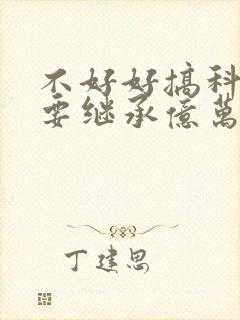 不好好搞科
要继承億萬
丁建思